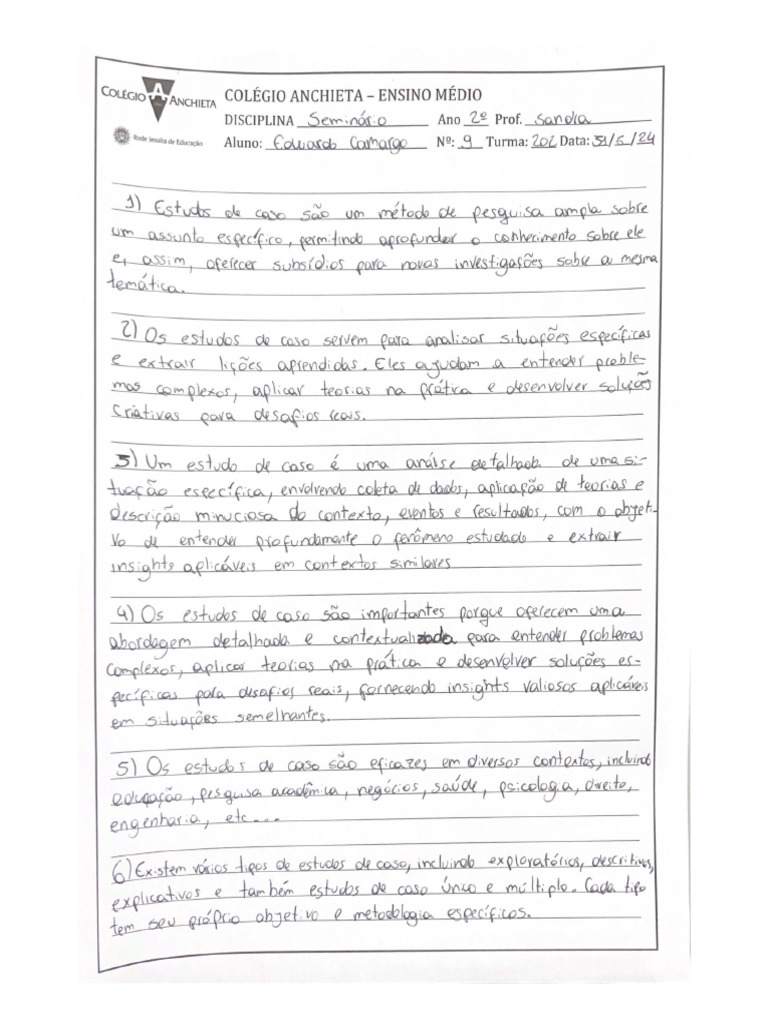 COLÉGIO ANCHIETA
Rede Jesuíta de Educação
COLÉGIO ANCHIETA – ENSINO MÉDIO
DISCIPLINA Seminário Ano 2º Prof. Sandra
Aluno: Eduardo Camargo Nº: 9 Turma: 202 Data: 31/5/24
1) Estudos de caso são um método de pesquisa ampla sobre
um assunto específico, permitindo aprofundar o conhecimento sobre ele
e, assim, oferecer subsídios para novas investigações sobre a mesma
temática.
2) Os estudos de caso servem para analisar situações específicas
e extrair lições aprendidas. Eles ajudam a entender proble-
mas complexos, aplicar teorias na prática e desenvolver soluções
criativas para desafios reais.
3) Um estudo de caso é uma análise detalhada de uma si-
tuação específica, envolvendo coleta de dados, aplicação de teorias e
descrição minuciosa do contexto, eventos e resultados, com o objeti-
vo de entender profundamente o fenômeno estudado e extrair
insights aplicáveis em contextos similares
4) Os estudos de caso são importantes porque oferecem uma
abordagem detalhada e contextualizada para entender problemas
complexos, aplicar teorias na prática e desenvolver soluções es-
pecíficas para desafios reais, fornecendo insights valiosos aplicáveis
em situações semelhantes.
5) Os estudos de caso são eficazes em diversos contextos, incluindo
educação, pesquisa acadêmica, negócios, saúde, psicologia, direito,
engenharia, etc....
6) Existem vários tipos de estudos de caso, incluindo exploratórios, descritivos,
explicativos e também estudos de caso único e múltiplo. Cada tipo
tem seu próprio objetivo e metodologia específicos.